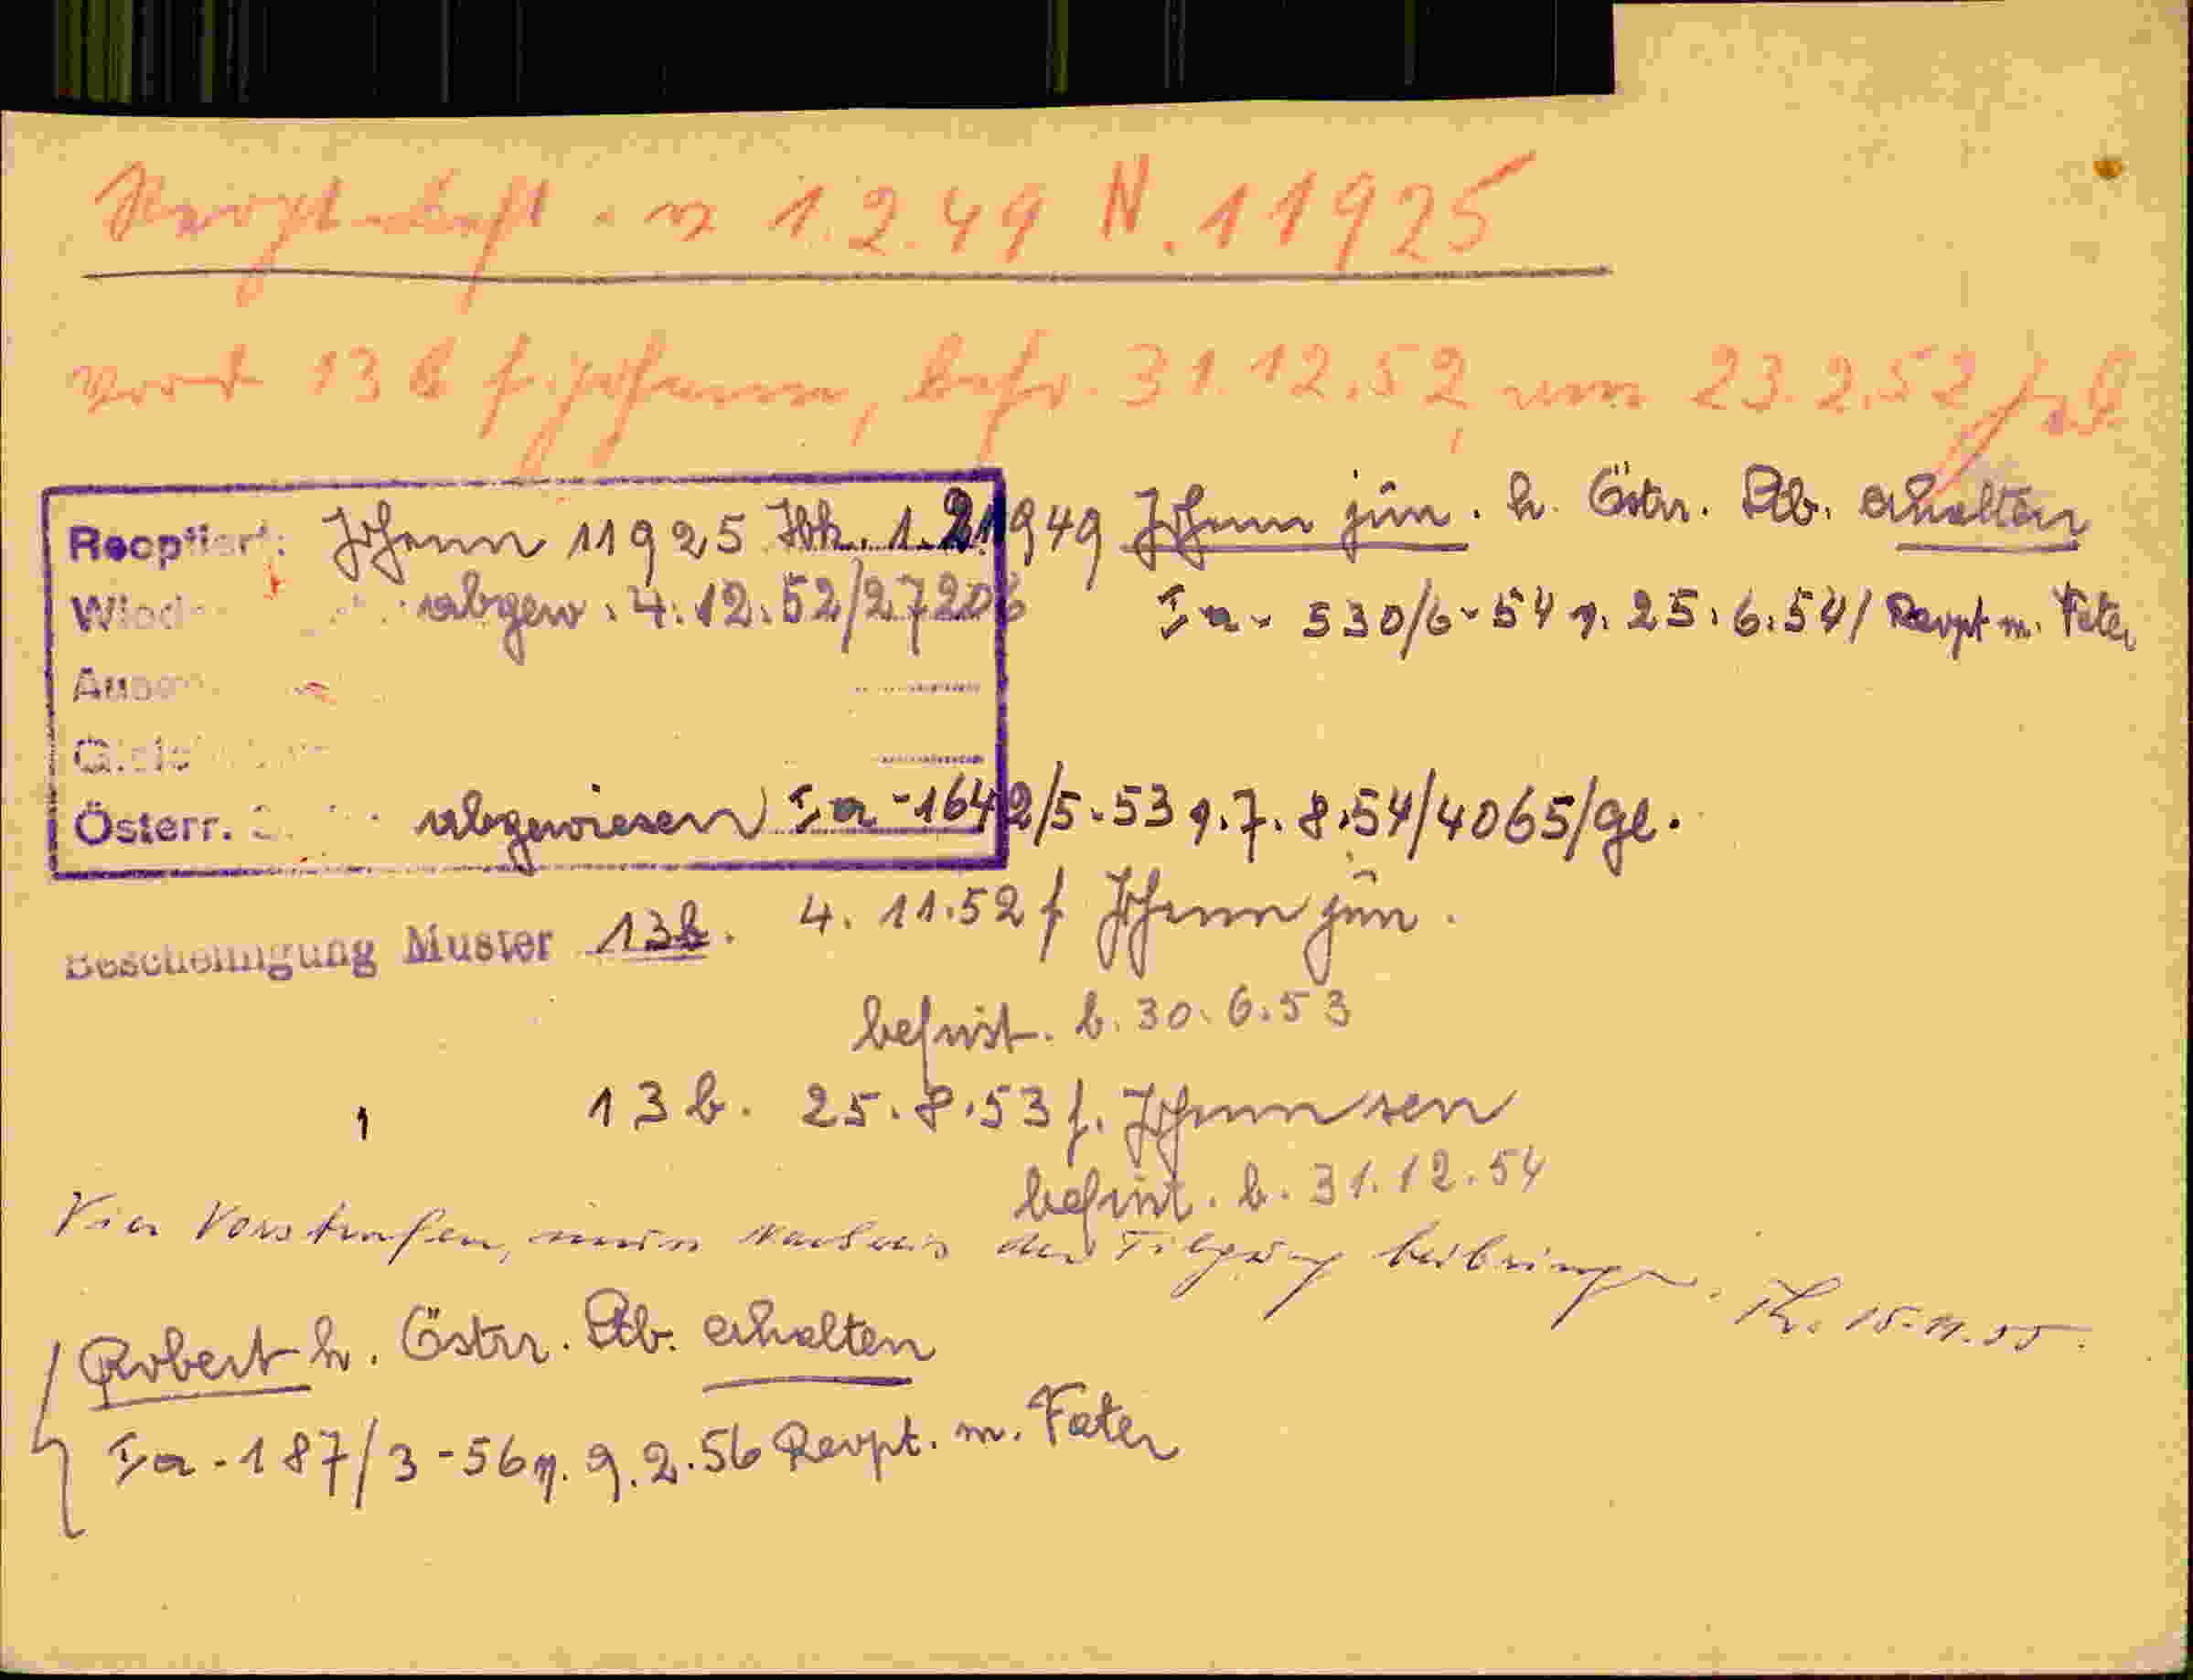 1.2.49 N. 11925
13 b f. Johann, befr. 31.12.52, vom 23.2.52
Reoptiert: Johann 11925 Hbk. 1.2.1949 Johann jun. h. Östr. Stb. erhalten
abgew. 4.12.52/27206 Ia - 530/6-54 v. 25.6.54/ Reopt m. Vater
Österr. abgewiesen Ia - 1642/5-53 v. 7.8.54/4065/ge.
Bescheinigung Muster 13b. 4.11.52 f Johann jun.
befrist. b. 30.6.53
13 b. 25.8.53 f. Johann sen
befrist. b. 31.12.54
Vier Vorstrafen, muss Nachweis der Tilgung beibringen. 15.11.55.
Robert h. Östrr. Stb. erhalten
Ia - 187/3-56 v. 9.2.56 Reopt. m. Vater